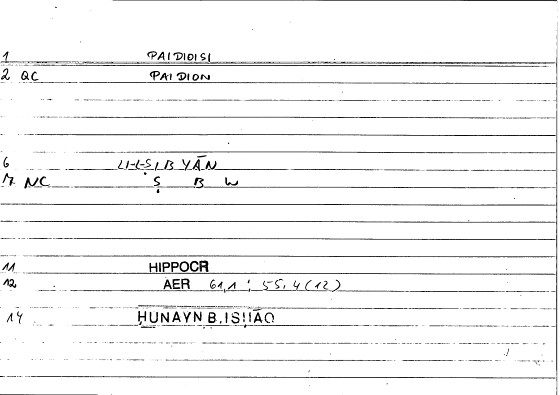 1 PAIDIOISI
2 QC PAIDION
6 LI-L-ṢIBYĀN
7 NC Ṣ B W
11 HIPPOCR
12 AER 61,1 ; 55,4 (12)
14 ḤUNAYN B. ISḤĀQ